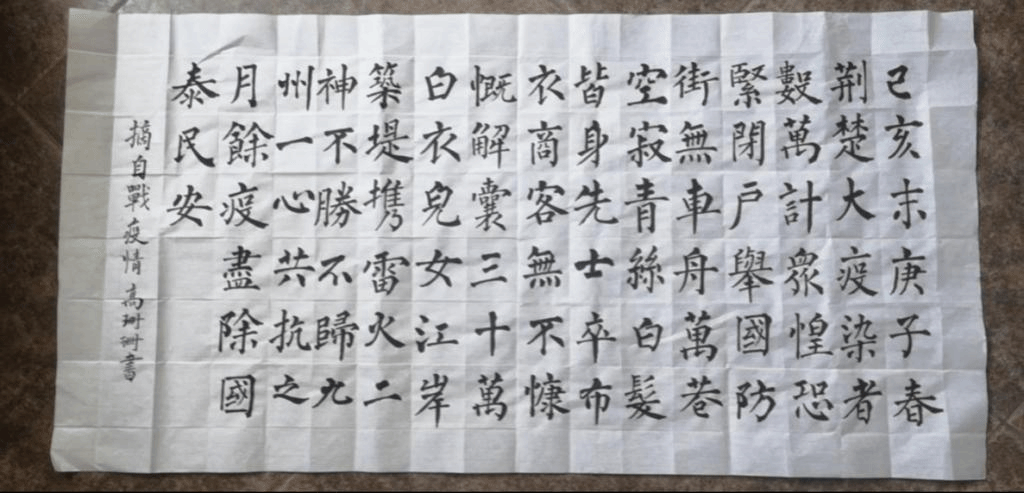 己亥末庚子春
荆楚大疫染者
數萬計眾惶恐
緊閉戸舉國防
街無車舟萬巷
空寂青絲白髮
皆身先士卒布
衣商客無不慷
慨解囊三十萬
白衣兒女江岸
築堤携雷火二
神不勝不歸九
州一心共抗之
月餘疫盡除國
泰民安
摘自戰疫情 高珊珊書